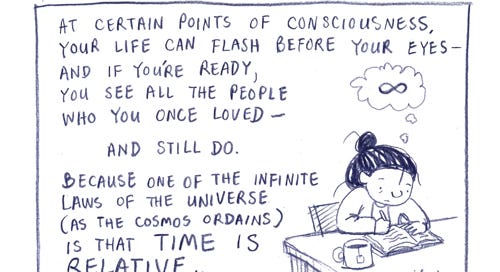 AT CERTAIN POINTS OF CONSCIOUSNESS,
YOUR LIFE CAN FLASH BEFORE YOUR EYES—
AND IF YOU'RE READY,
YOU SEE ALL THE PEOPLE
WHO YOU ONCE LOVED—
AND STILL DO.
BECAUSE ONE OF THE INFINITE
LAWS OF THE UNIVERSE
(AS THE COSMOS ORDAINS)
IS THAT TIME IS
RELATIVE